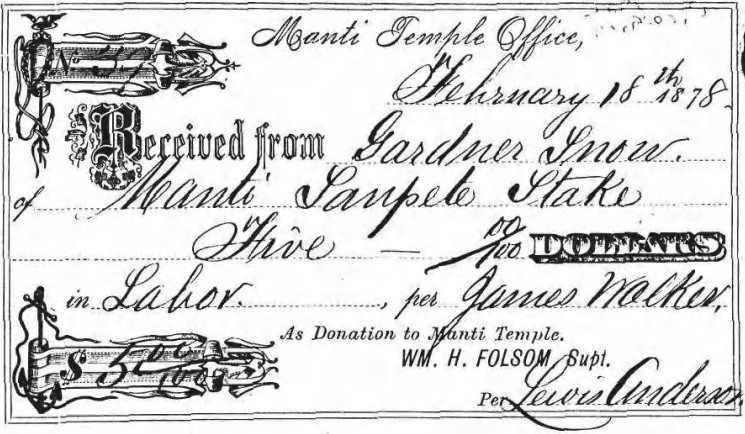 Manti Temple Office,
No 57
February 18th 1878.
Received from Gardner Snow.
of Manti Sanpete Stake
Five — 00/100 DOLLARS
in Labor. , per James Walker,
As Donation to Manti Temple.
WM. H. FOLSOM, Supt.
$ 5 00/100
Per Lewis Anderson.